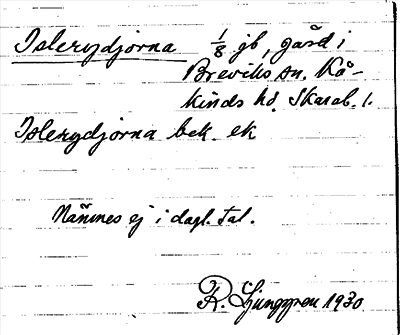 Islerydjorna 1/8 gb, gård i
Breviks sn. Kå-
kinds hd. Skarab. l.
Islerydjorna bek. ek
Nämnes ej i dagl. tal.
R. Ljunggren 1930